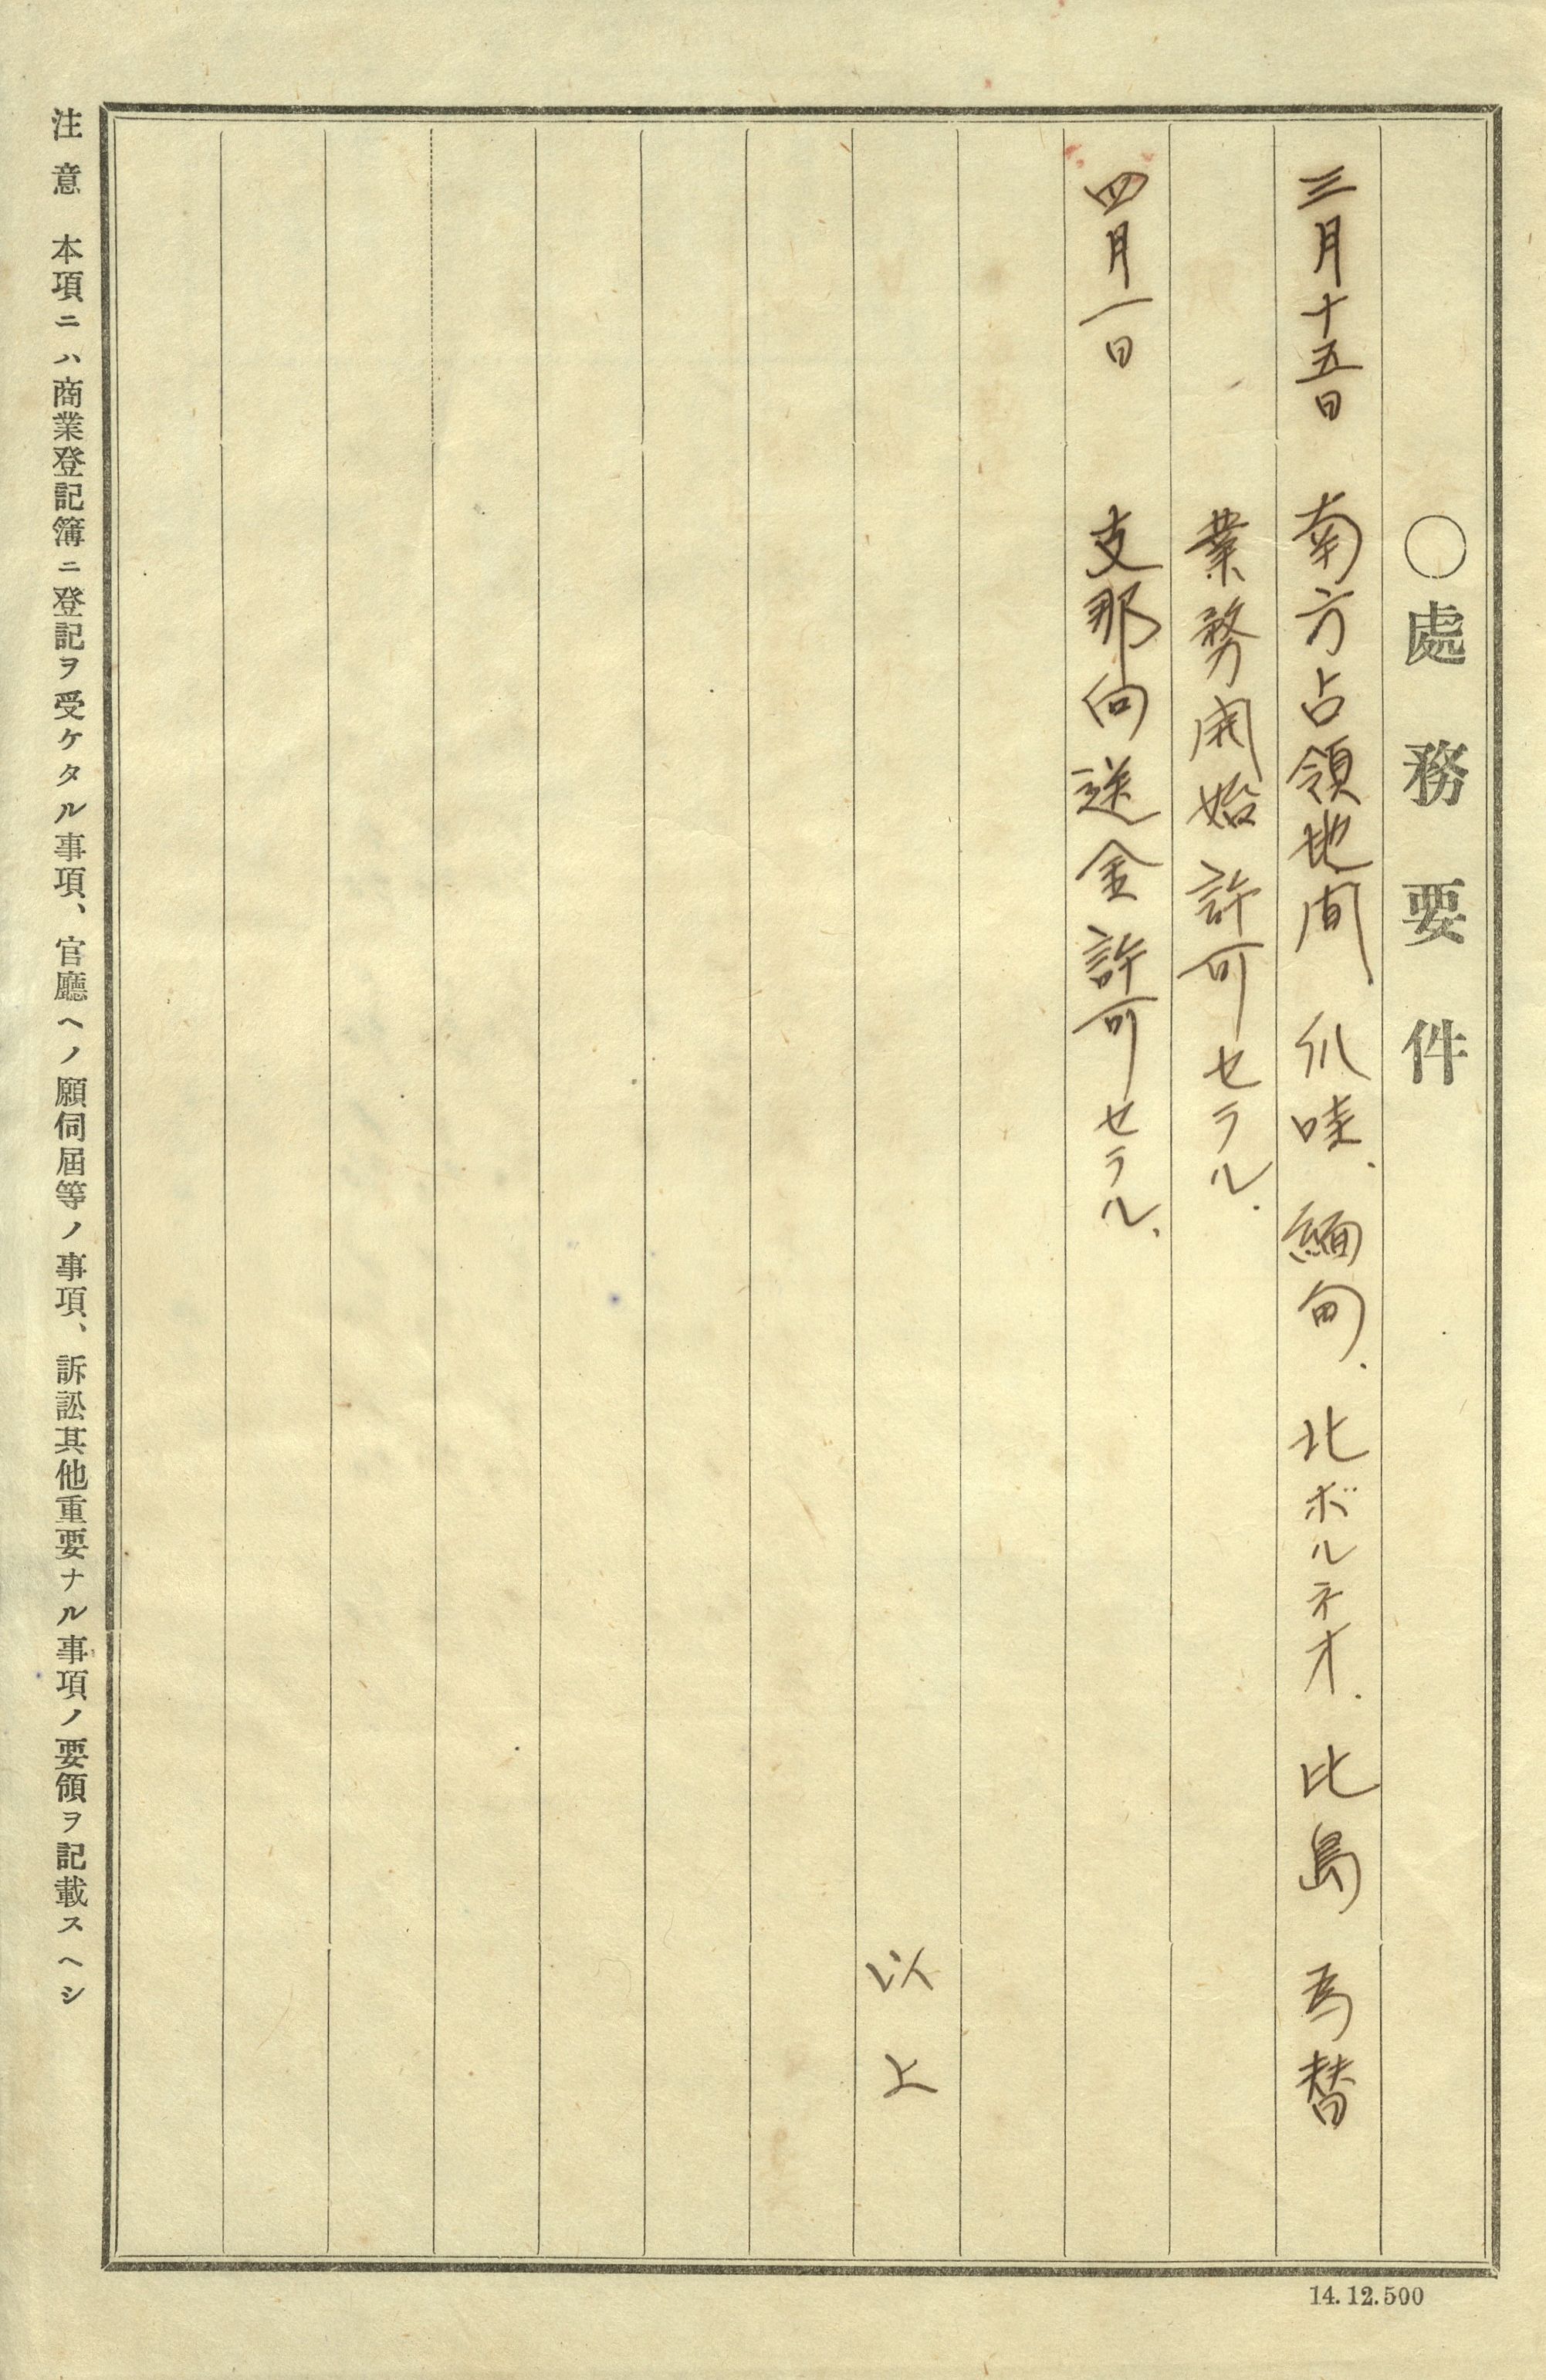 〇處務要件
三月十五日 南方占領地間 爪哇、緬甸、北ボルネオ、比島 為替
業務開始許可セラル、
四月一日 支那向送金許可セラル、
以上
注意 本項ニハ商業登記簿ニ登記ヲ受ケタル事項、官廳ヘノ願伺屆等ノ事項、訴訟其他重要ナル事項ノ要領ヲ記載スヘシ
14.12.500